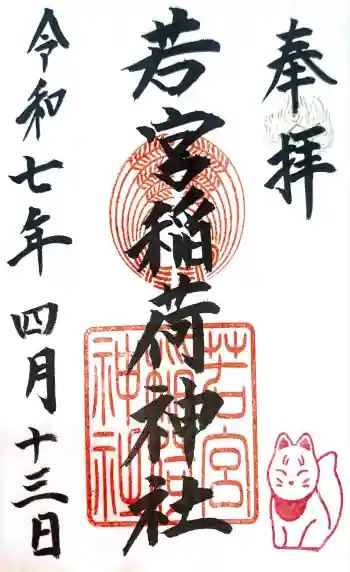 奉拝
若宮稲荷神社
若宮稲荷神社
令和七年 四月十三日